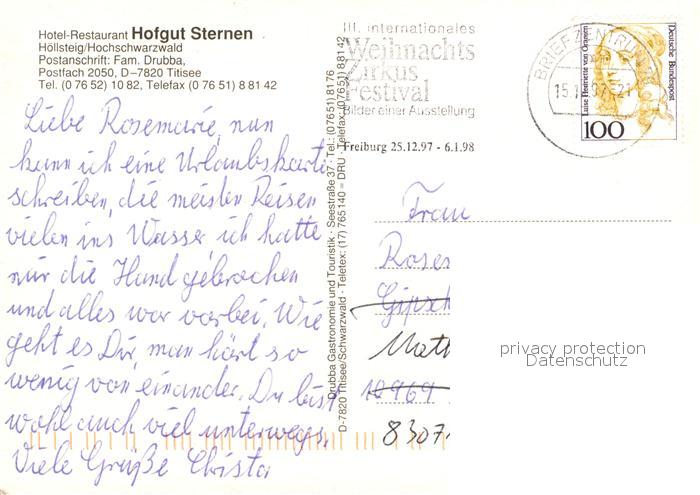 Hotel-Restaurant Hofgut Sternen
Höllsteig/Hochschwarzwald
Postanschrift: Fam. Drubba,
Postfach 2050, D–7820 Titisee
Tel. (0 76 52) 10 82, Telefax (0 76 51) 8 81 42
Liebe Rosemarie, nun
kann ich eine Urlaubskarte
schreiben, die meisten Reisen
vielen ins Wasser ich hatte
mir die Hand gebrochen
und alles war vorbei. Wie
geht es Dir, man hört so
wenig von einander. Du bist
wohl auch viel unterwegs.
Viele Grüße Christa
Drubba Gastronomie und Touristik · Seestraße 37 · Tel.: (07651) 8176
D-7820 Titisee/Schwarzwald · Teletex: (17) 765140 = DRU · Telefax: (07651) 881 42
III. internationales
Weihnachts
Zirkus
Festival
Bilder einer Ausstellung
Freiburg 25.12.97 - 6.1.98
BRIEFZENTRUM
Luise Henriette von Oranien
Deutsche Bundespost
100
Frau
Roser
Gipsch
10969
8307
privacy protection
Datenschutz